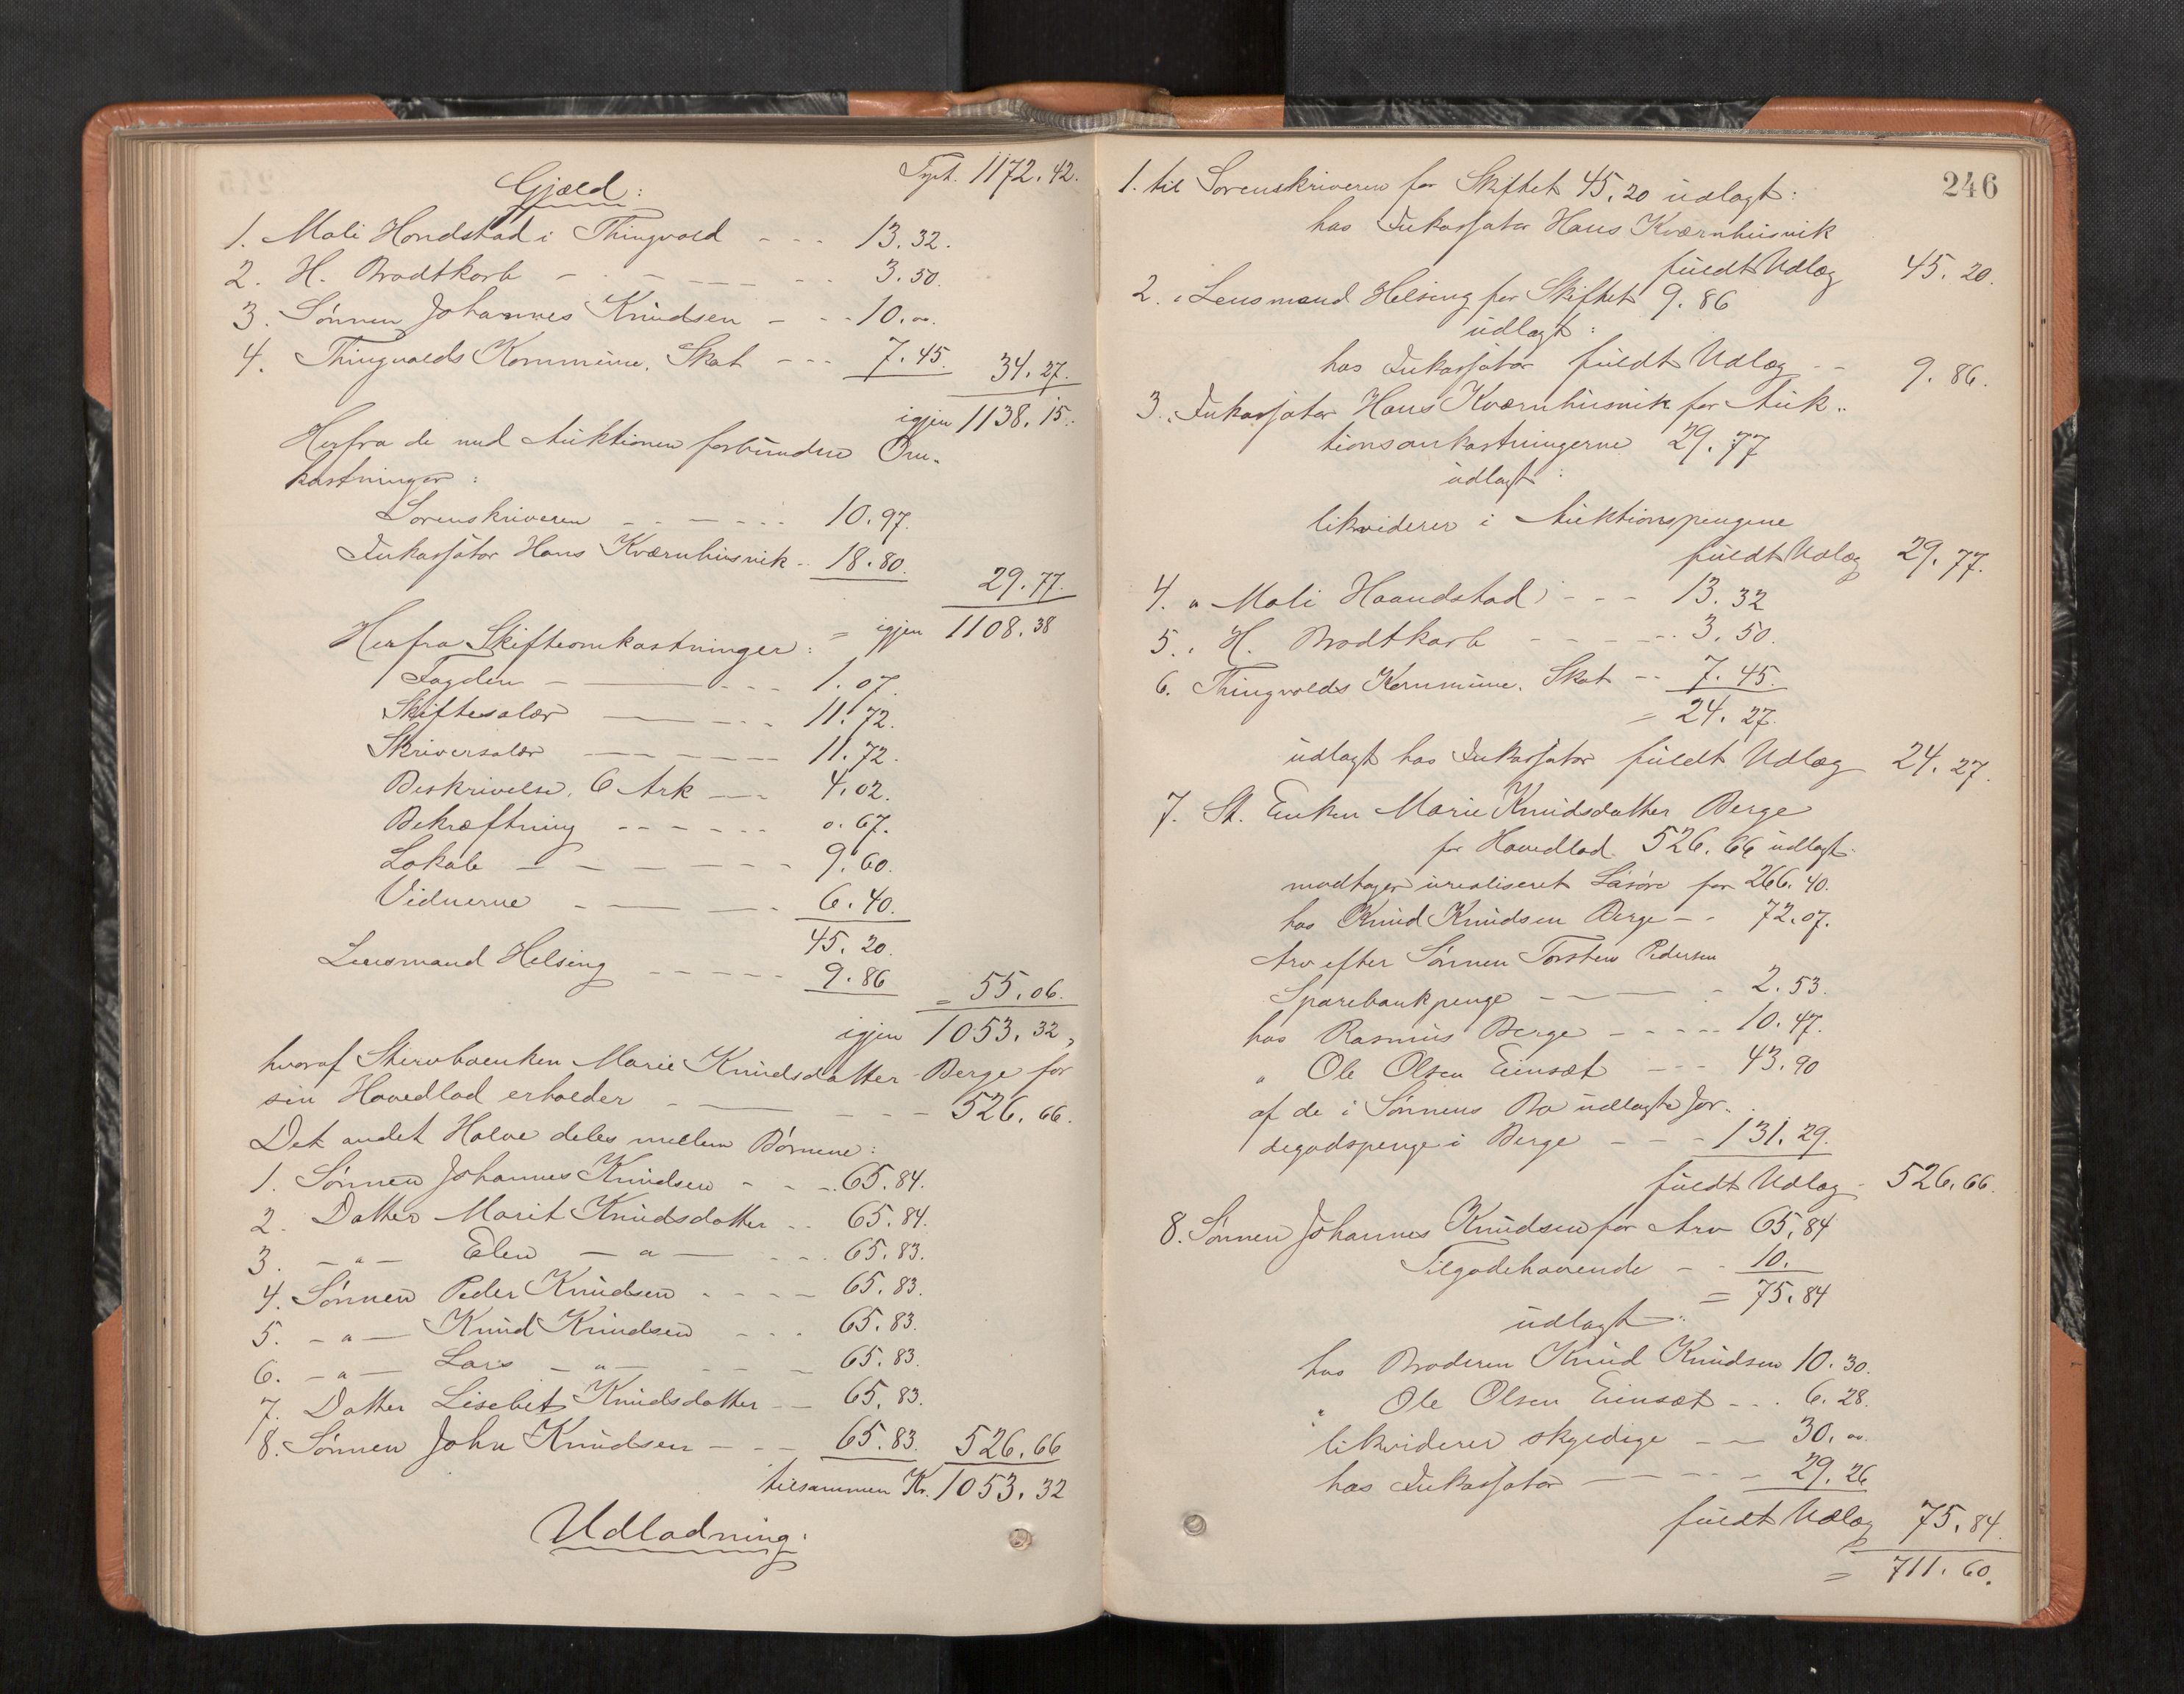 Tpt. 1172.42.
Gjæld:
1. Mali Hondstad i Thingvold - - - 13.32.
2. H. Brodtkorb - - - - - - 3.50.
3. Sønnen Johannes Knudsen - - - 10.00.
4. Thingvolds Kommune, Skat - - - 7.45. 34.27.
igjen 1138.15.
Herfra de med Auktionen forbundne Om-
kostninger:
Sorenskriveren - - - - - 10.97.
Inkassator Hans Kværnhusvik - 18.80.
29.77.
= igjen 1108.38
Herfra Skifteomkostninger:
Fogden - - - - 1.07.
Skiftesalær - - - 11.72.
Skriversalær - - - - 11.72.
Beskrivelse, 6 Ark - - 4.02.
Bekræftning - - - - - - 0.67.
Lokale - - - - - - - 9.60.
Vidnerne - - - - 6.40.
45.20.
Lensmand Helsing - - - - - 9.86
= 55.06.
igjen 1053.32,
hvoraf Stervboenken Marie Knudsdatter Berge for
sin Hovedlod erholder - - - - - 526.66.
Det andet Halve deles mellem Børnene:
1. Sønnen Johannes Knudsen - - - 65.84.
2. Datter Marit Knudsdatter - - 65.84.
3. - " - Elen - " - - - 65.83.
4. Sønnen Peder Knudsen - - - - 65.83.
5. - " - Knud Knudsen - - - 65.83.
6. - " - Lars - " - - - - 65.83.
7. Datter Lisebet Knudsdatter - - 65.83.
8. Sønnen John Knudsen - - - 65.83. 526.66
tilsammen Kr. 1053.32
Udlodning:
246
1. til Sorenskriveren for Skiftet 45.20 udlagt:
hos Inkassator Hans Kværnhusvik
fuldt Udlæg 45.20.
2. " Lensmand Helsing for Skiftet 9.86
udlagt:
hos Inkassator fuldt Udlæg - - 9.86.
3. " Inkassator Hans Kværnhusvik for Auk-
tionsomkostningerne 29.77
udlagt:
likviderer i Auktionspengene
fuldt Udlæg 29.77.
4. " Mali Haandstad - - - 13.32
5. " H. Brodtkorb - - - - - 3.50.
6. Thingvolds Kommune, Skat - - 7.45.
= 24.27.
udlagt hos Inkassator fuldt Udlæg 24.27.
7. St. Enken Marie Knudsdatter Berge
for Hovedlod 526.66 udlagt:
modtager urealiseret Løsøre for 266.40.
hos Knud Knudsen Berge - - 72.07.
Arv efter Sønnen Torsten Pedersen
Sparebankpenge - - - - 2.53.
hos Rasmus Berge - - - - - 10.47.
" Ole Olsen Einsæt - - - 43.90
af de i Sønnens Bo udlagte Jor-
degodspenge i Berge - - - 131.29.
fuldt Udlæg - 526.66.
8. Sønnen Johannes Knudsen for Arv 65.84
Tilgodehavende - - 10.
= 75.84
udlagt:
hos Broderen Knud Knudsen 10.30.
" Ole Olsen Einsæt - - - 6.28.
likviderer skyldige - - 30.00.
hos Inkassator - - - - 29.26
fuldt Udlæg 75.84.
= 711.60.